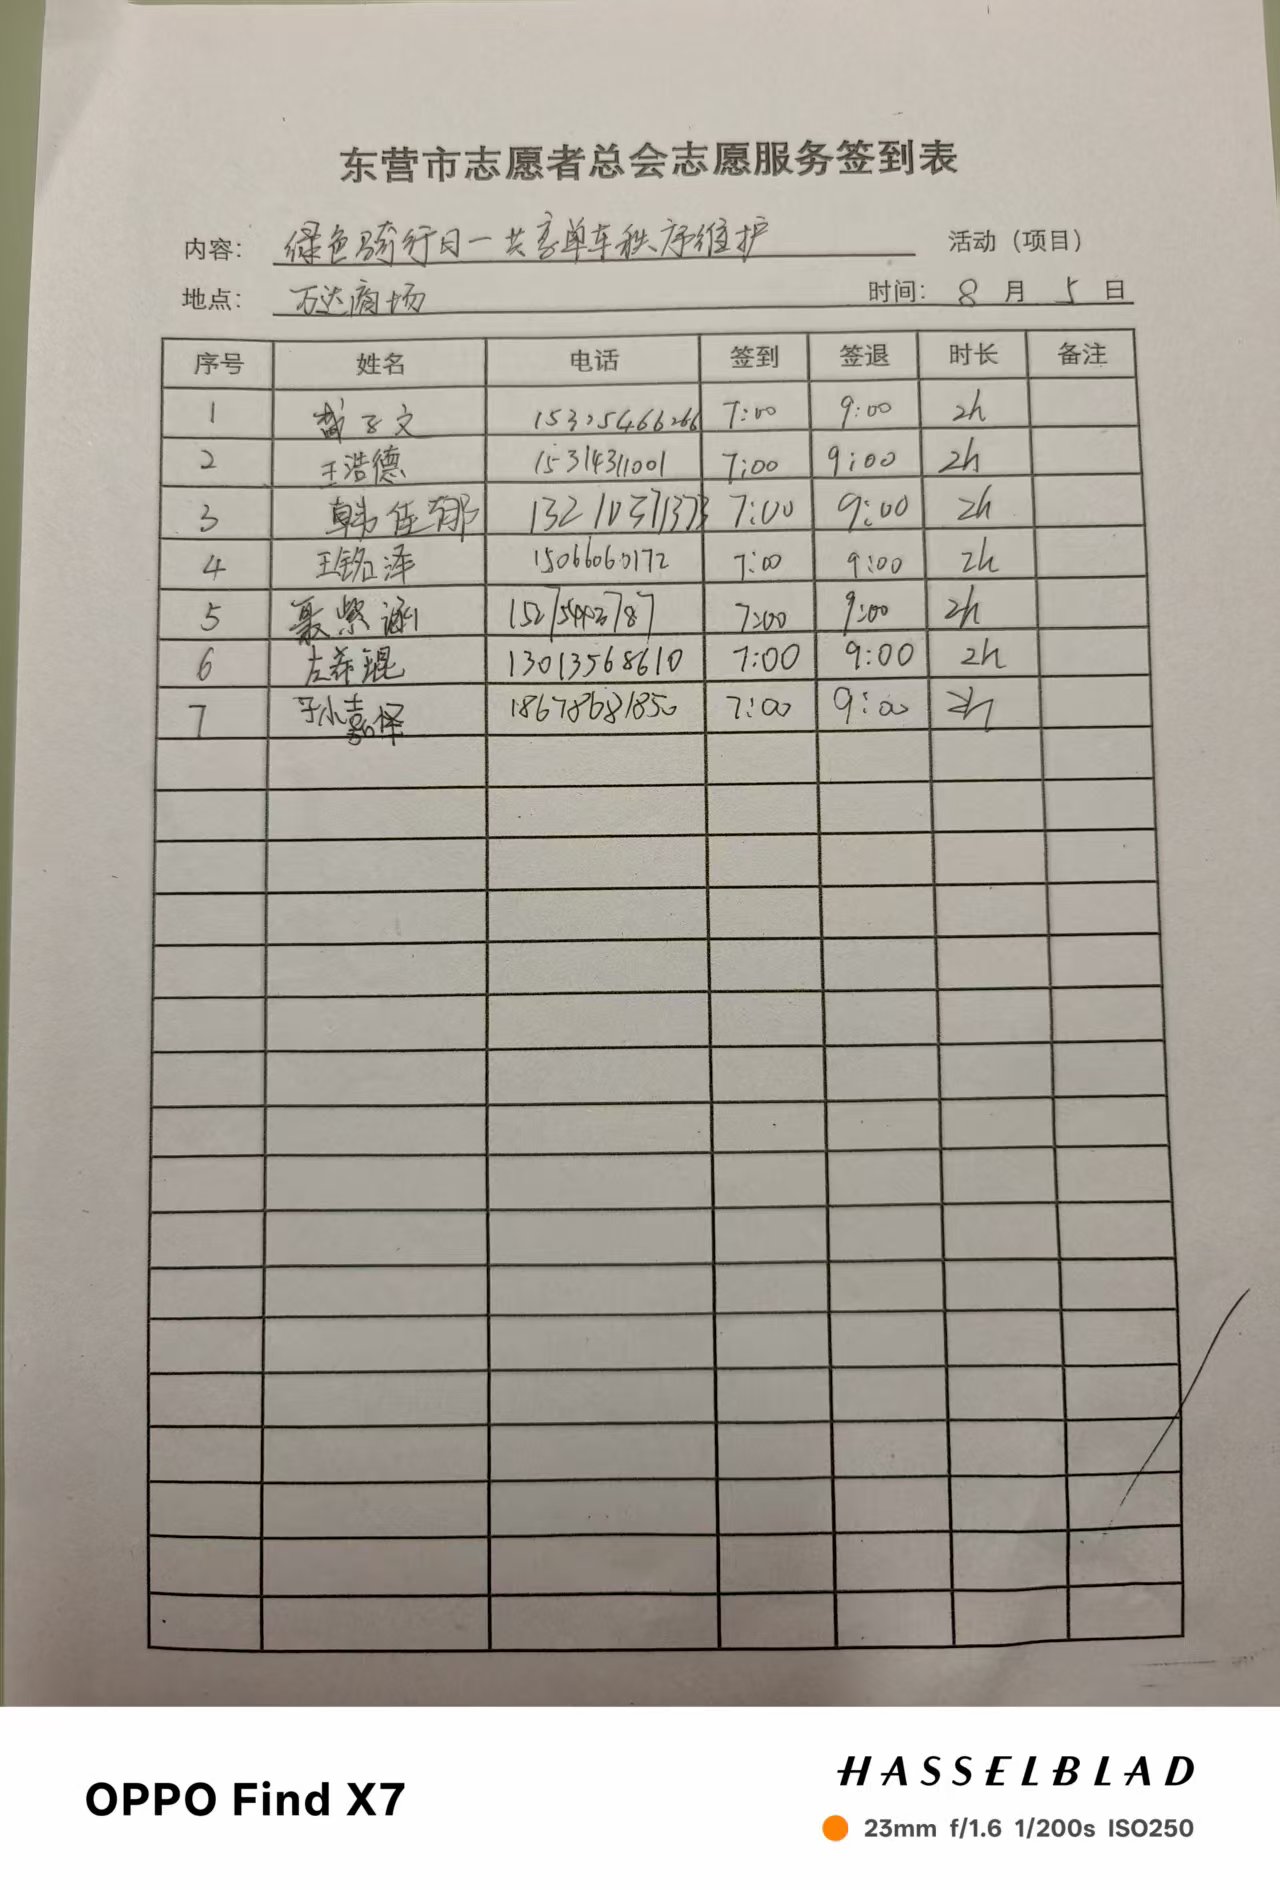 东营市志愿者总会志愿服务签到表
内容： 绿色骑行日一共享单车秩序维护 活动（项目）
地点： 万达商场 时间： 8 月 5 日
序号 姓名 电话 签到 签退 时长 备注
1 文 15325466266 7:00 9:00 2h
2 王浩德 15314311001 7:00 9:00 2h
3 韩佳郁 7:00 9:00 2h
4 王铭泽 15066060172 7:00 9:00 2h
5 聂紫涵 7:00 9:00 2h
6 左 锟 13013568610 7:00 9:00 2h
7 嘉怿 18678681850 7:00 9:00 2h
OPPO Find X7
HASSELBLAD
23mm f/1.6 1/200s ISO250